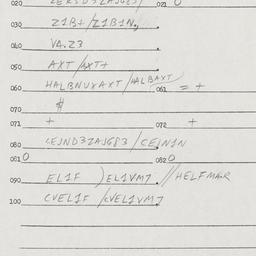 020 021 0
030 Z1B+/Z1B1N,
040 VA.Z3
050 AXT/AXT+
060 HALBNUXAXT/HALBAXT 061 = +
070 #
071 + 072 +
080 CEJND3ZAJG83/CEJN1N
081 0 082 0
090 EL1F )EL1VM7. //HELFMAR
100 CVEL1F /CVEL1VM7